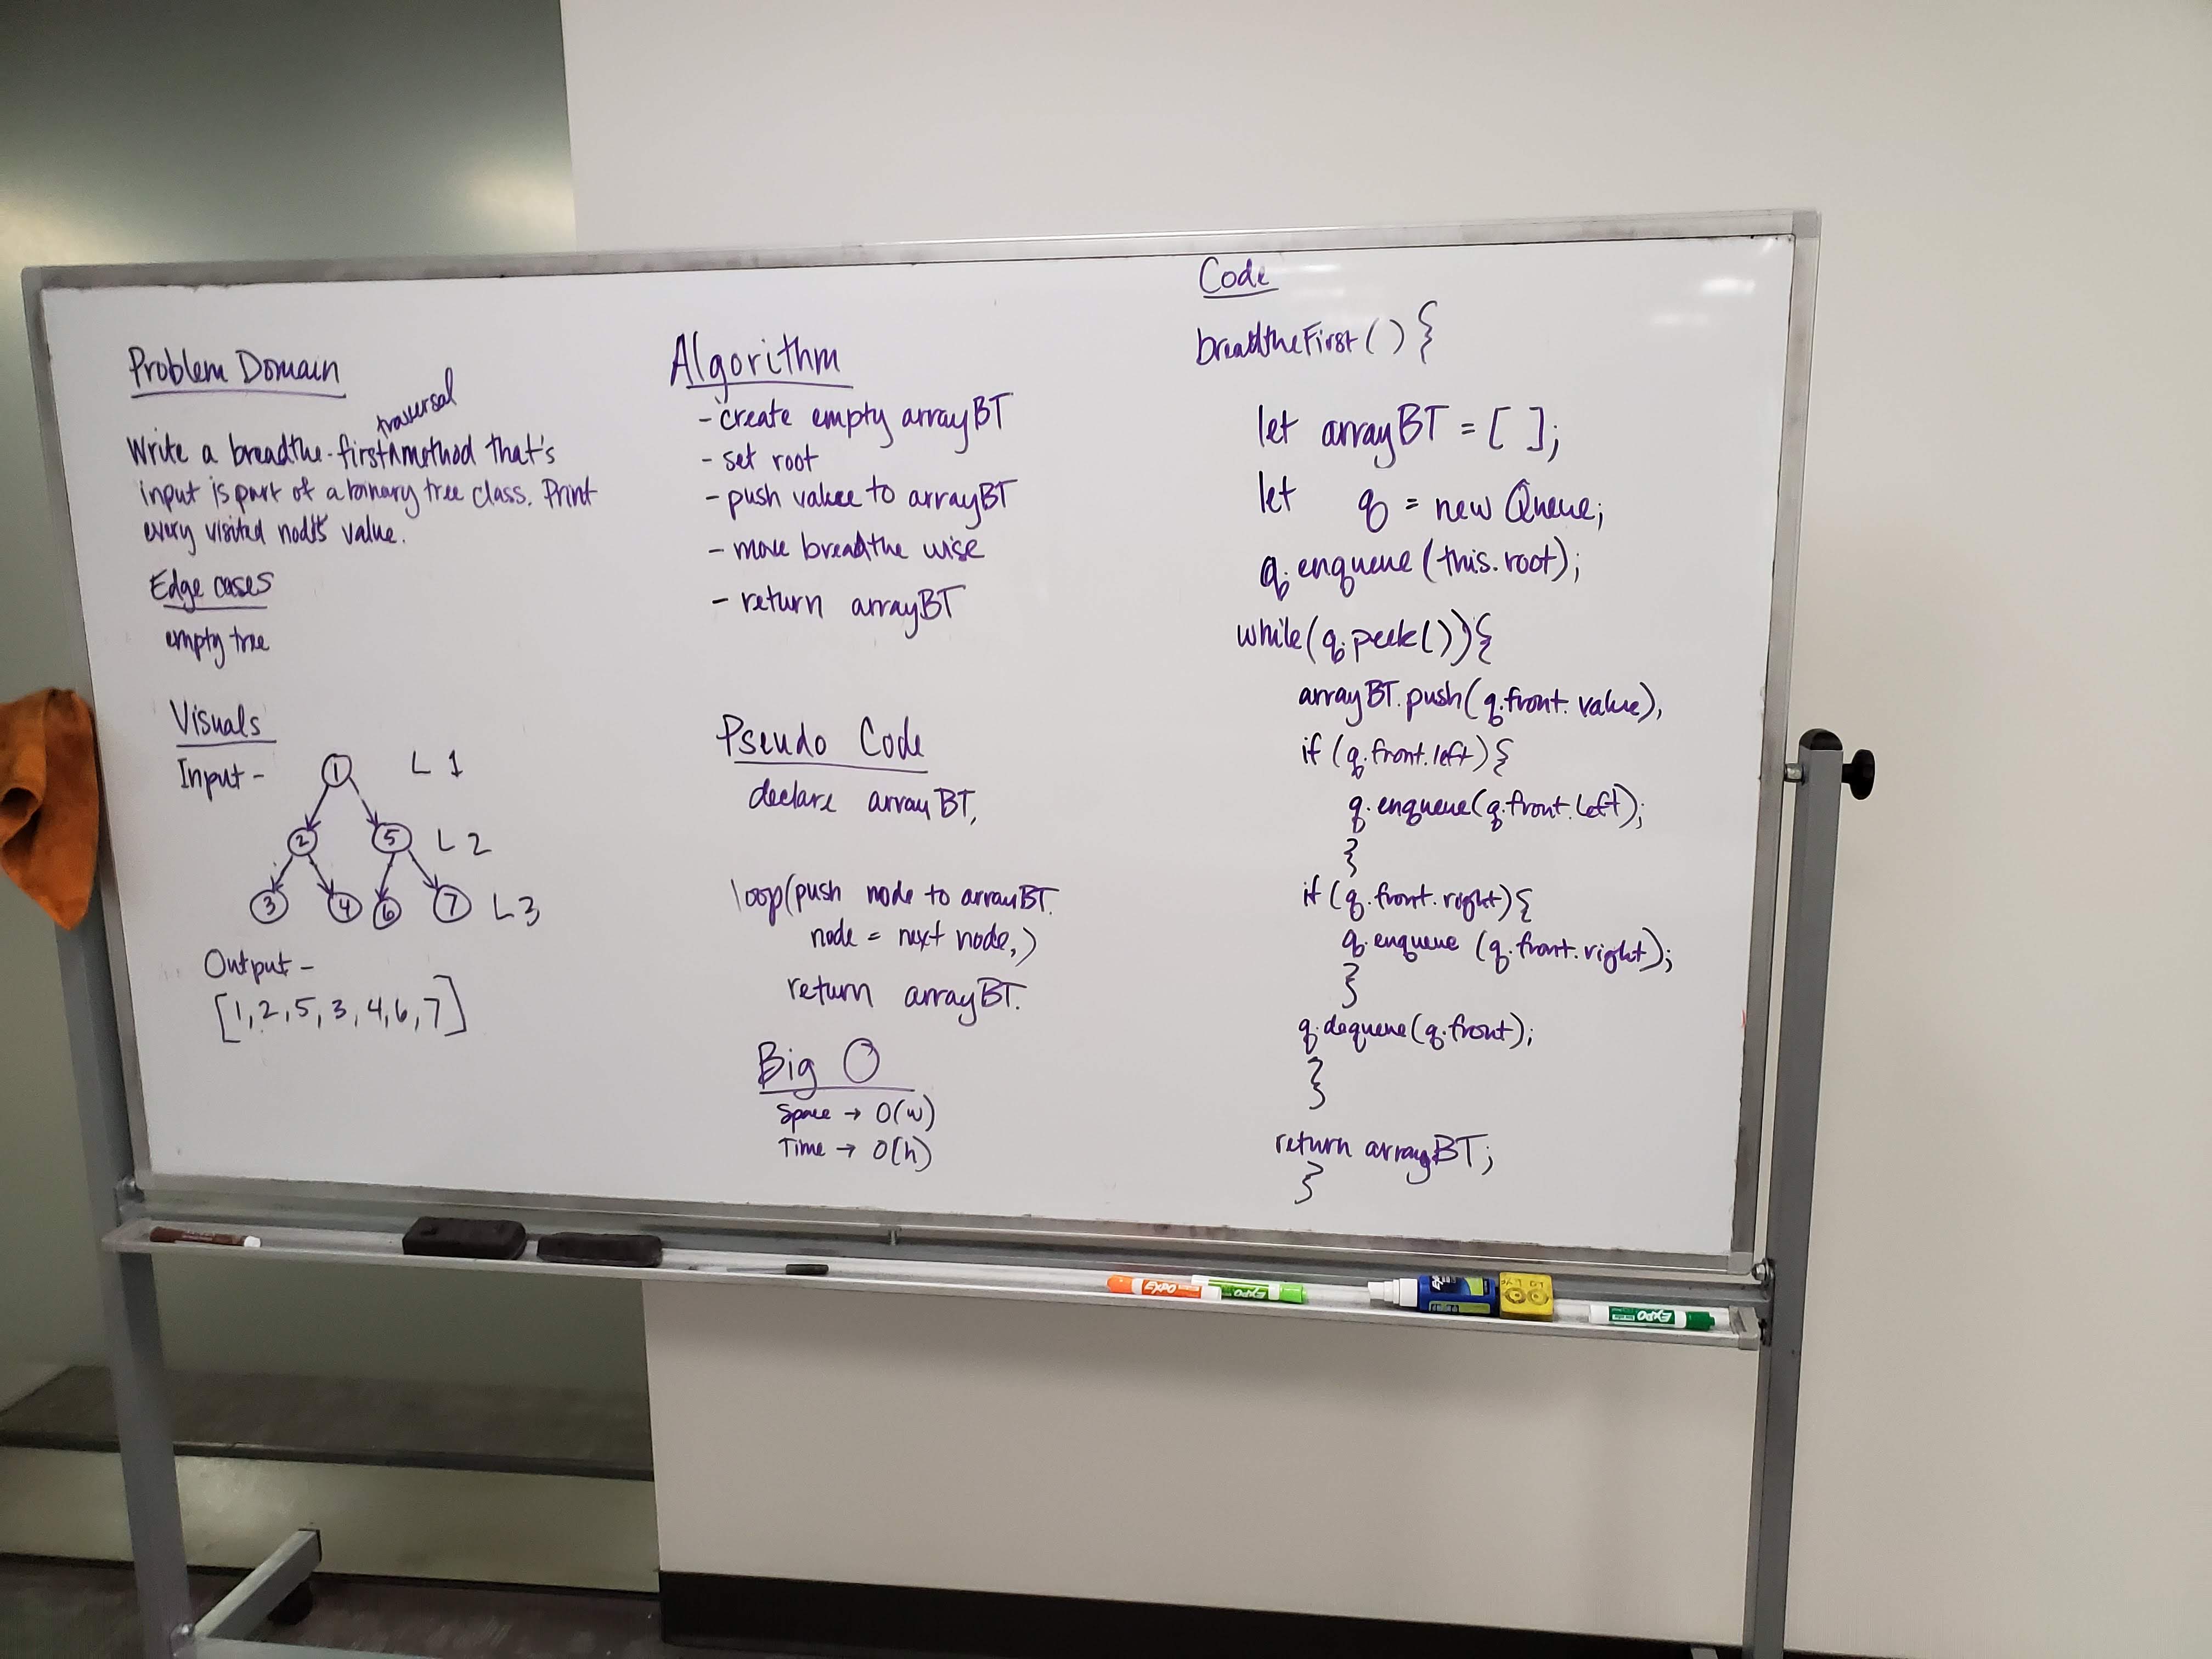 Problem Domain
traversal
Write a breadthe-first^method that's
input is part of a binary tree class. Print
every visited node's value.
Edge cases
empty tree
Visuals
Input -
1 L 1
2 5 L 2
3 4 6 7 L3
Output -
[1,2,5,3,4,6,7]
Algorithm
- create empty arrayBT
- set root
- push value to arrayBT
- move breadthe wise
- return arrayBT
Pseudo Code
declare arrayBT,
loop(push node to arrayBT.
node = next node,)
return arrayBT.
Big O
Space → O(w)
Time → O(h)
Code
breadtheFirst() {
let arrayBT = [ ];
let q = new Queue;
q.enqueue(this.root);
while(q.peek()){
arrayBT.push(q.front.value),
if (q.front.left){
q.enqueue(q.front.left);
}
if (q.front.right){
q.enqueue (q.front.right);
}
q.dequeue(q.front);
}
return arrayBT;
}
EXPO
EXPO
EXPO